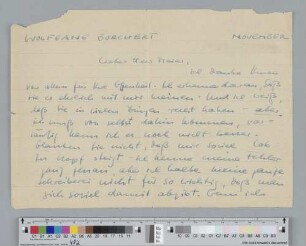 WOLFGANG BORCHERT NOVEMBER
Lieber Herr
ich danke Ihnen
vor allem für Ihre Offenheit. Ich erkenne daran, daß
Sie es ehrlich mit mir meinen. Und ich weiß,
daß Sie in vielen Dingen recht haben - aber,
ich muß von selbst dahin kommen, vor-
läufig kann ich es noch nicht
Glauben Sie nicht, daß mir soviel Lob
zu Kopf steigt - ich kenne meine Fehler
ganz genau, aber ich halte meine ganze
Schreiberei nicht für so wichtig, daß man
sich soviel damit abgibt. Ganz
472